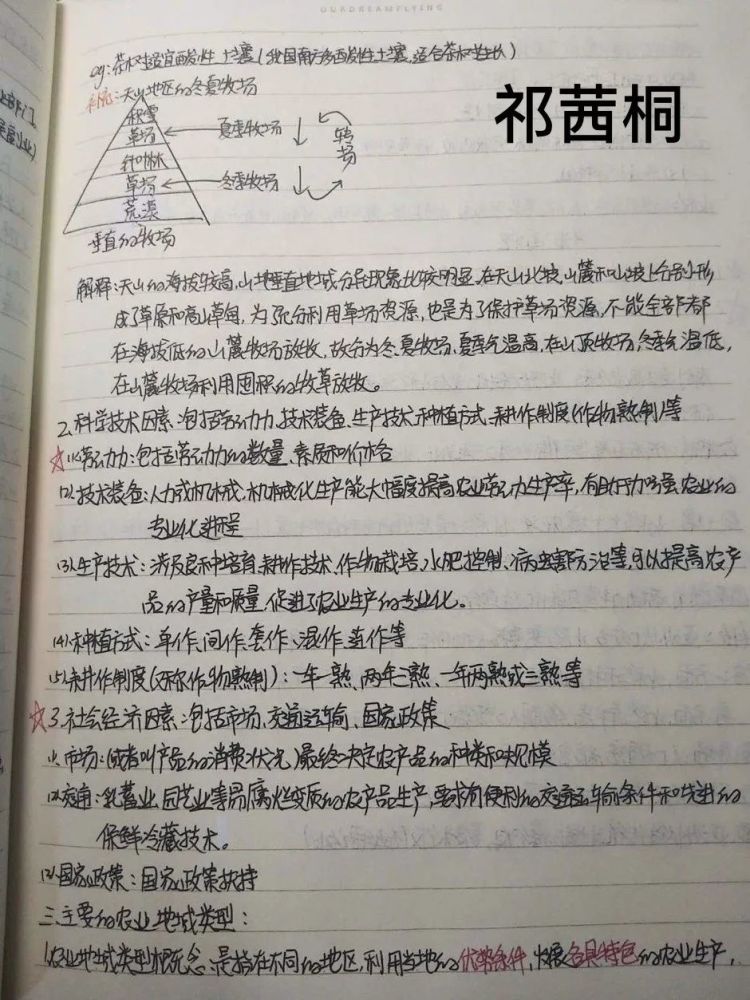 QUADREAMFLYING
eg:茶树适宜酸性土壤(我国南方多酸性土壤,适合茶树生长)
祁茜桐
补充:天山地区的冬夏牧场
积雪
草场 夏季牧场
针叶林
转场
草场 冬季牧场
荒漠
垂直的牧场
解释:天山的海拔较高,山地垂直地域分异现象比较明显。在天山北坡,山麓和山坡上分别形
成了草原和高山草甸,为了充分利用草场资源,也是为了保护草场资源,不能全部都
在海拔低的山麓牧场放牧,故分为冬、夏牧场、夏季气温高,在山顶牧场,冬季气温低,
在山麓牧场利用囤积的牧草放牧。
2.科学技术因素:包括劳动力、技术装备、生产技术、种植方式、耕作制度(作物熟制)等
☆(1)劳动力:包括劳动力的数量、素质和价格
(2)技术装备:人力或机械,机械化生产能大幅度提高农业劳动生产率,有助于加强农业的
专业化进程
(3)生产技术:涉及良种培育、耕作技术、作物栽培、水肥控制、病虫害防治等,可以提高农产
品的产量和质量,促进了农业生产的专业化。
(4)种植方式:单作、间作、套作、混作、连作等
(5)耕作制度(又称作物熟制):一年一熟、两年三熟、一年两熟或三熟等
☆3.社会经济因素:包括市场、交通运输、国家政策
(1)市场:或者叫产品的消费状况,最终决定农产品的种类和规模
(2)交通:乳畜业、园艺业等易腐烂变质的农产品生产,要求有便利的交通运输条件和先进的
保鲜冷藏技术。
(3)国家政策:国家政策扶持
三.主要的农业地域类型:
1.农业地域类型概念:是指在不同的地区,利用当地的优势条件,发展各具特色的农业生产,